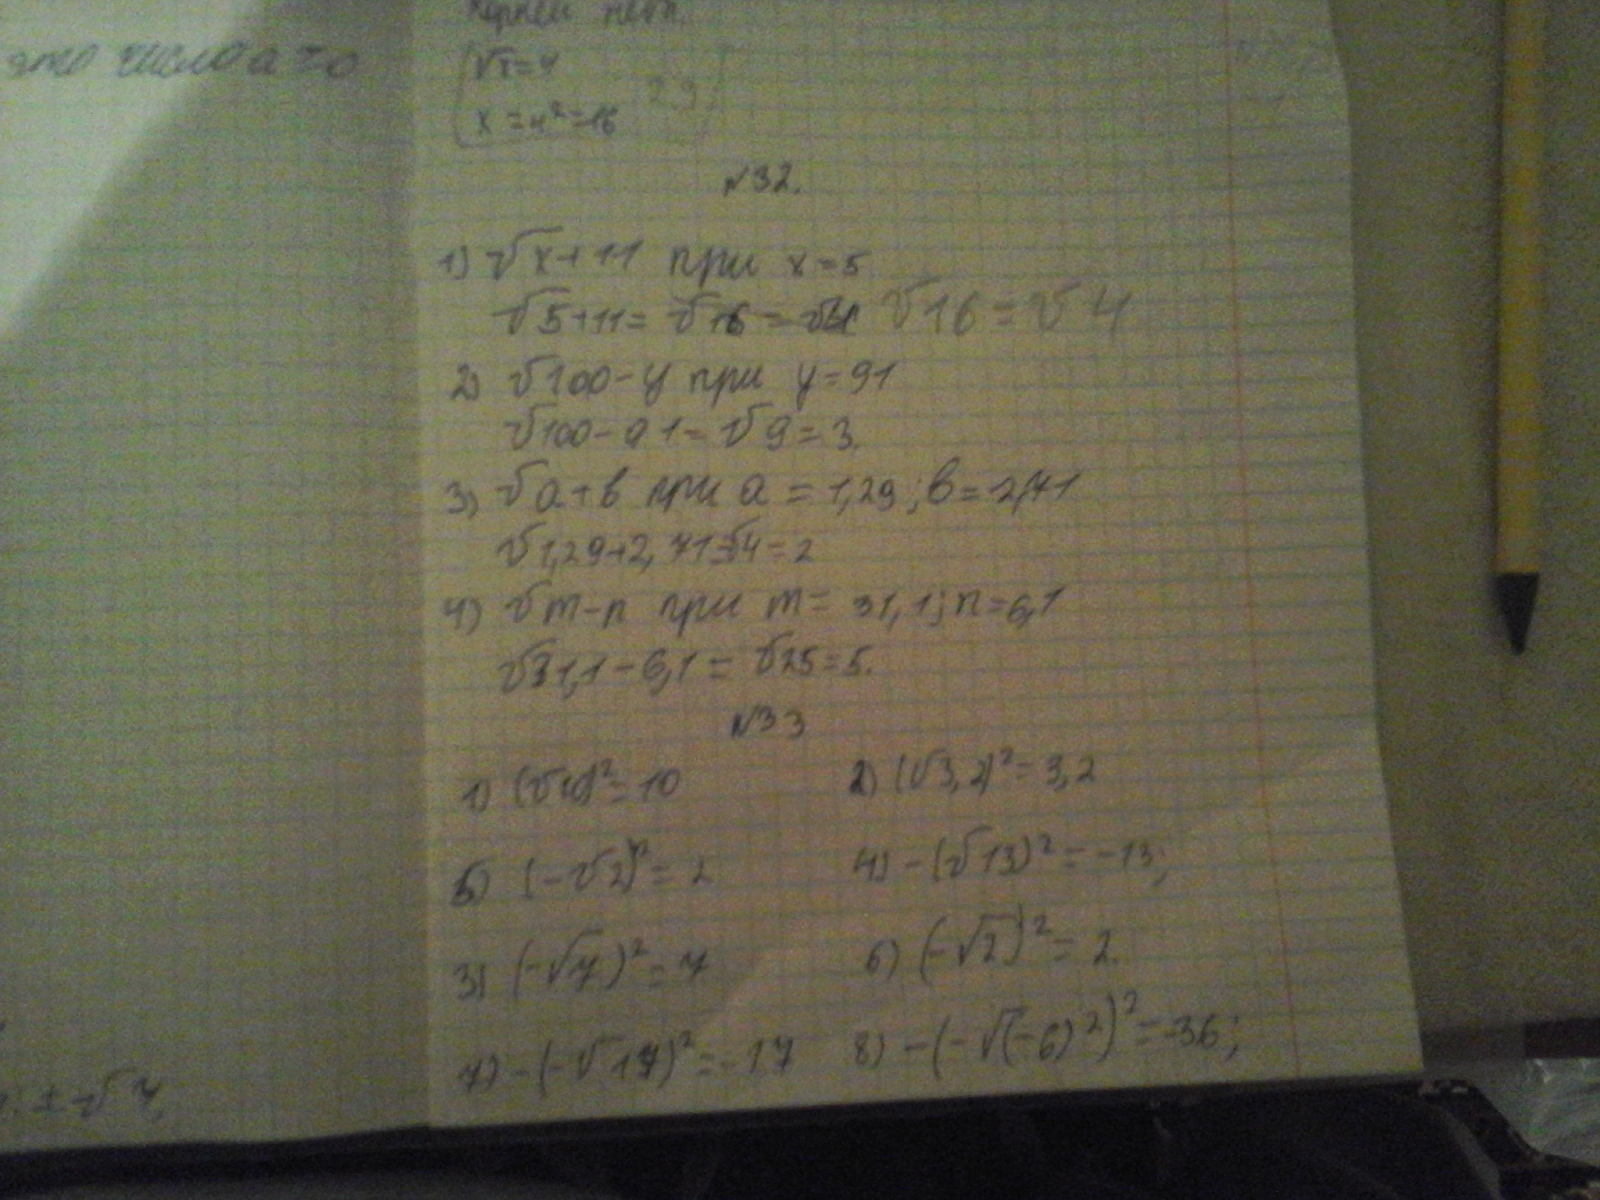 это число a = 0
корней
√x=4
x = 4²=16
N32.
1) √x+11 при x=5
√5+11= √16 = √4 √16 = √4
2) √100-y при y=91
√100-91= √9=3.
3) √a+b при a = 1,29; b=2,71
√1,29+2,71=√4=2
4) √m-n при m= 31,1; n=6,1
√31,1-6,1= √25=5.
N33
1) (√10)²=10 2) (√3,2)²=3,2
5) (-√2)²= 2 4) -(√13)²=-13;
3) (-√7)²=7 6) (-√2)²= 2.
7) -(-√17)²=-17 8) -(-√(-6)²)²=-36;
± √7,